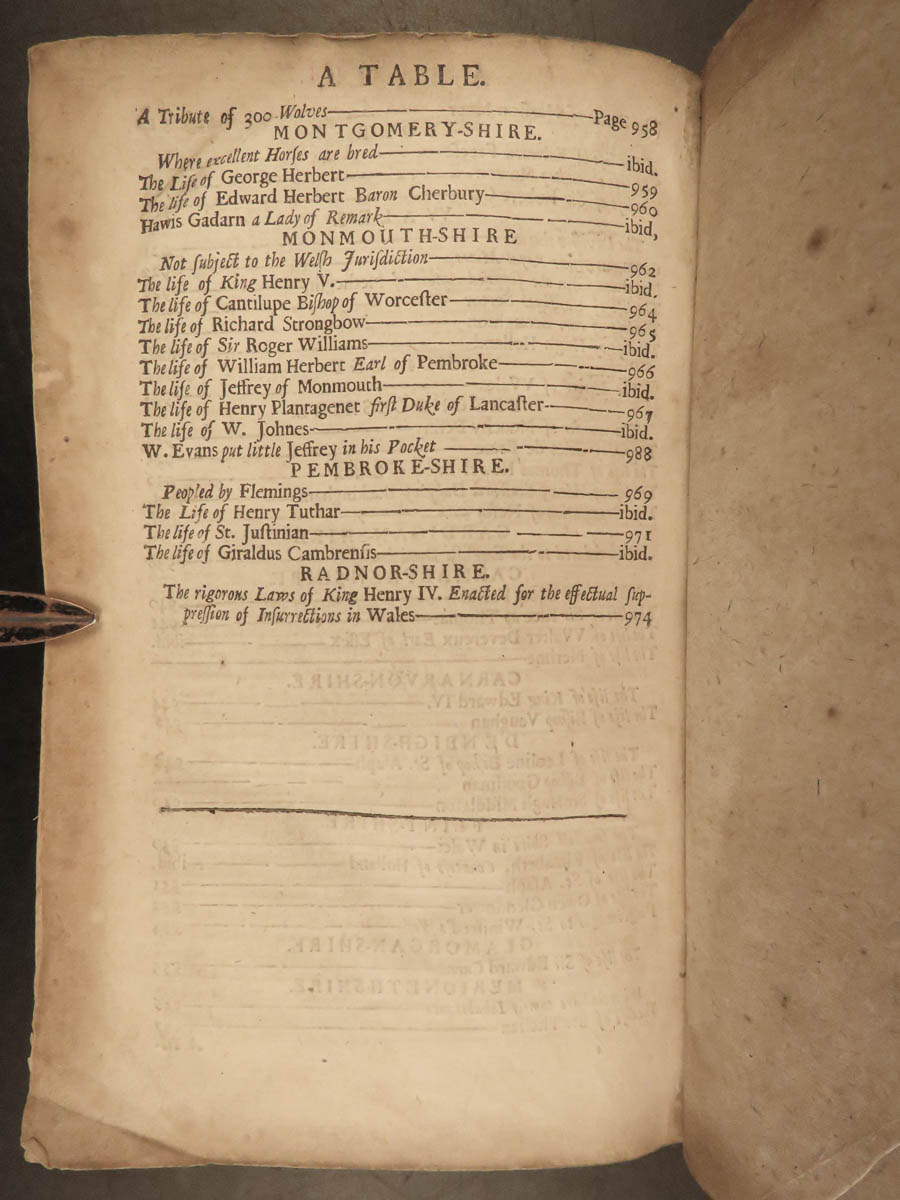 A TABLE.
A Tribute of 300 Wolves Page 958
MONTGOMERY-SHIRE.
Where excellent Horſes are bred ibid.
The Life of George Herbert 959
The life of Edward Herbert Baron Cherbury 960
Hawis Gadarn a Lady of Remark ibid,
MONMOUTH-SHIRE
Not ſubject to the Welſh Juriſdiction 962
The life of King Henry V. ibid.
The life of Cantilupe Biſhop of Worceſter 964
The life of Richard Strongbow 965
The life of Sir Roger Williams ibid.
The life of William Herbert Earl of Pembroke 966
The life of Jeffrey of Monmouth ibid.
The life of Henry Plantagenet firſt Duke of Lancaſter 967
The life of W. Johnes ibid.
W. Evans put little Jeffrey in his Pocket 988
PEMBROKE-SHIRE.
Peopled by Flemings 969
The Life of Henry Tuthar ibid.
The life of St. Juſtinian 971
The life of Giraldus Cambrenſis ibid.
RADNOR-SHIRE.
The rigorous Laws of King Henry IV. Enacted for the effectual ſup-
preſſion of Inſurrections in Wales 974